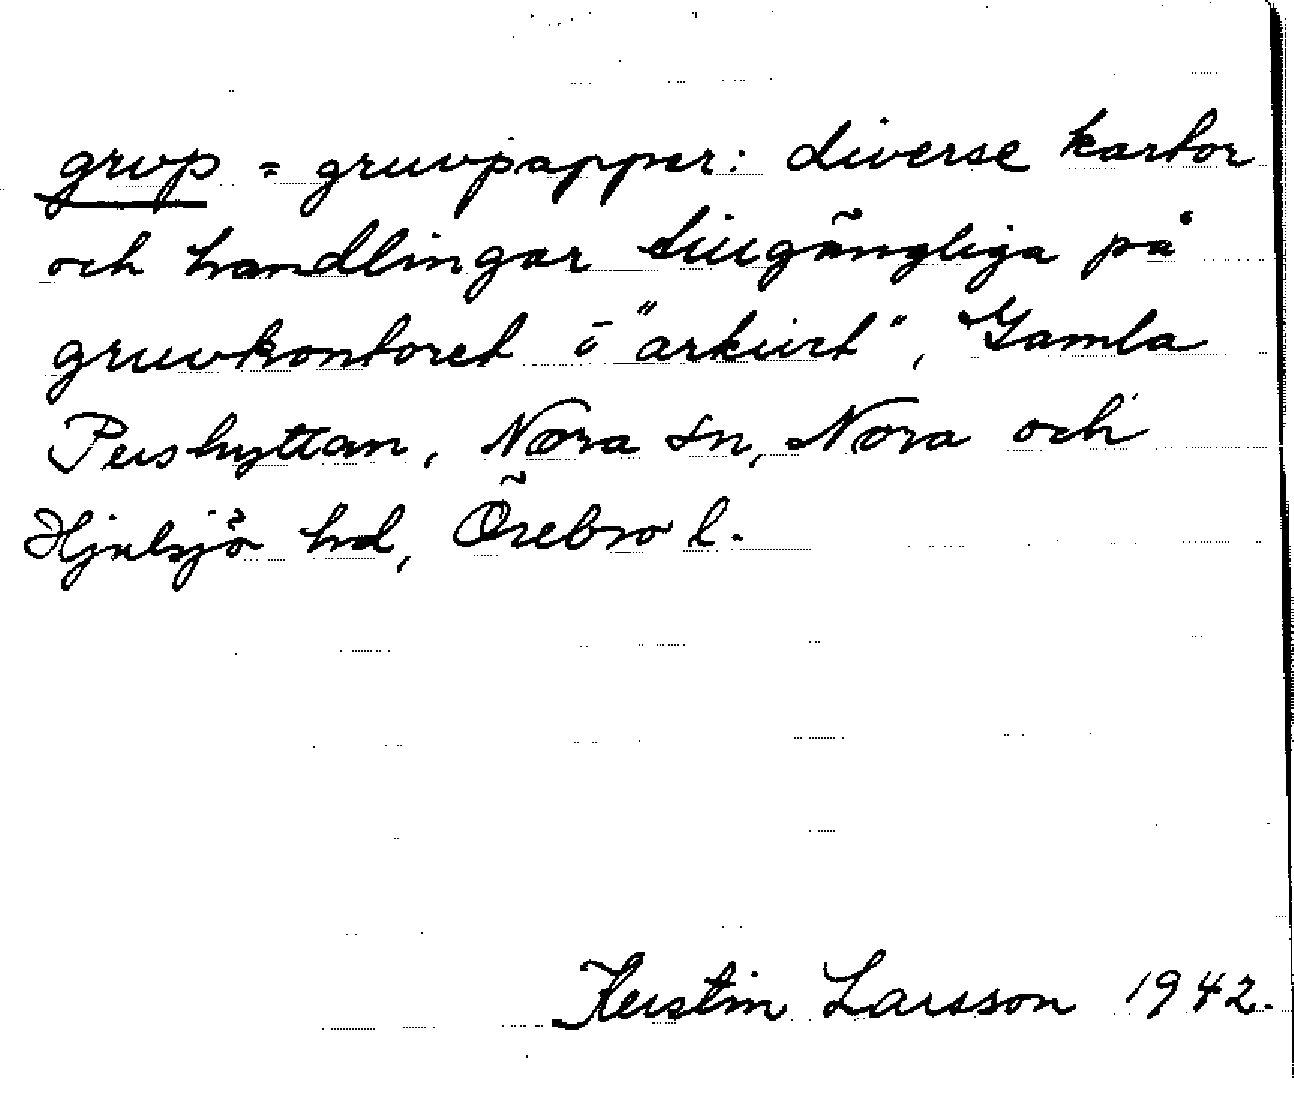 grvp = gruvpapper: diverse kartor
och handlingar tillgängliga på
gruvkontoret ō "arkivet", Gamla
Pershyttan, Nora sn, Nora och
Hjulsjö hd, Örebro l.
Kerstin Larsson 1942.